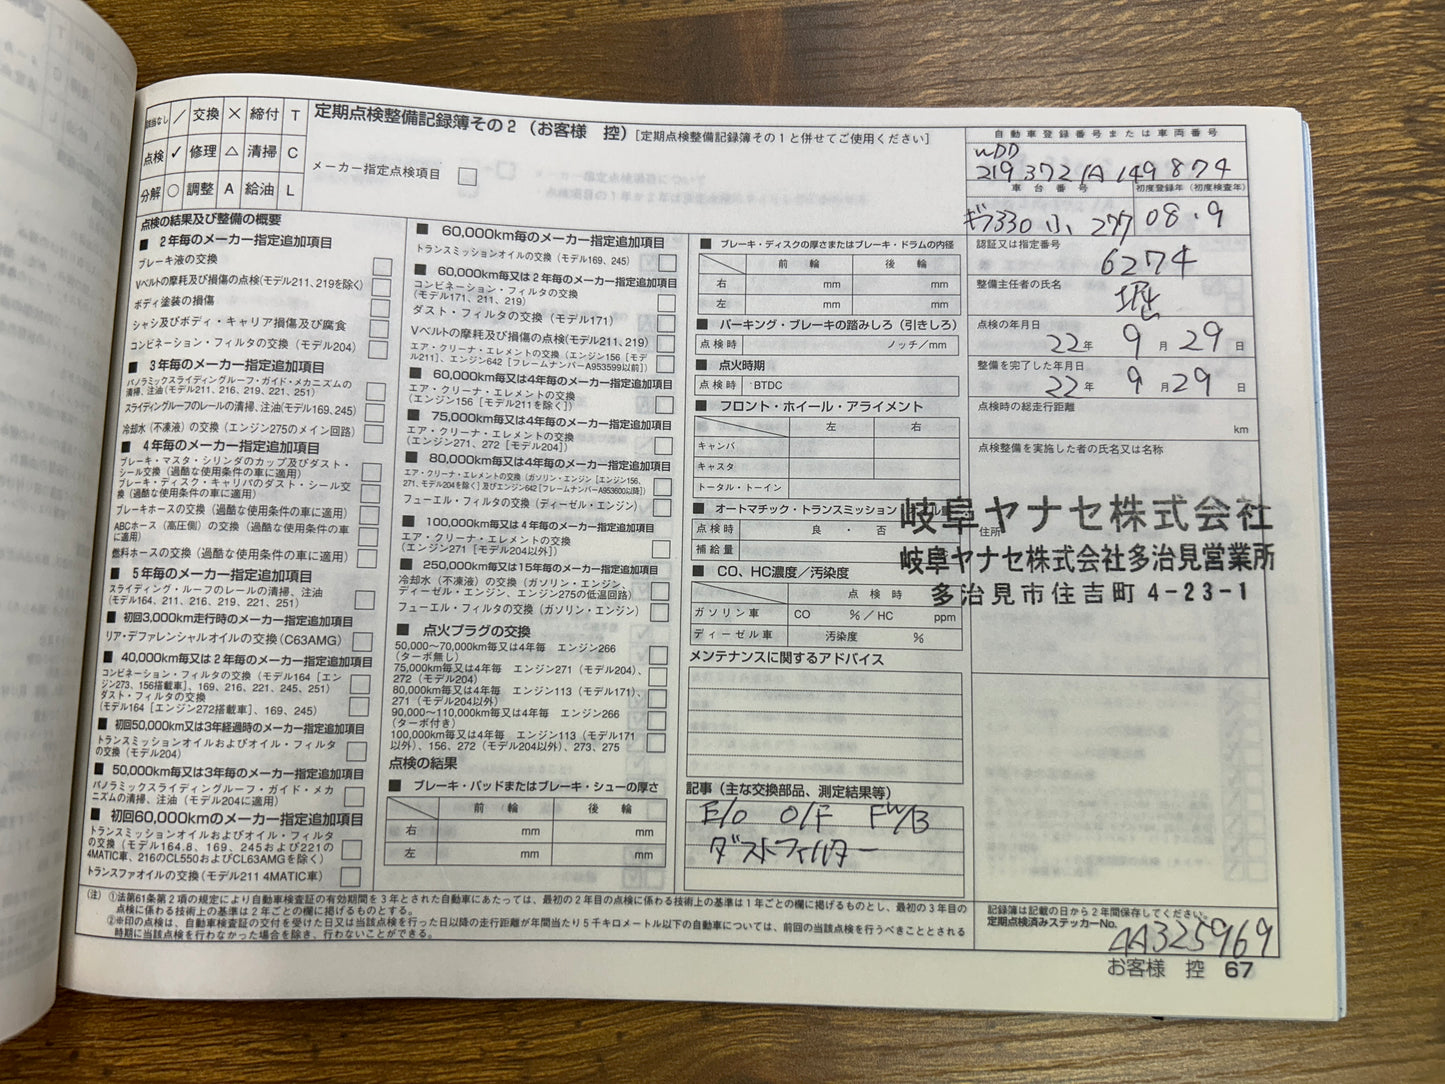 該当なし / 交換 × 締付 T
点検 ✓ 修理 △ 清掃 C
分解 ○ 調整 A 給油 L
定期点検整備記録簿その2（お客様 控）[定期点検整備記録簿その1と併せてご使用ください]
メーカー指定点検項目
点検の結果及び整備の概要
■ 2年毎のメーカー指定追加項目
ブレーキ液の交換
Vベルトの摩耗及び損傷の点検(モデル211、219を除く)
ボディ塗装の損傷
シャシ及びボディ・キャリア損傷及び腐食
コンビネーション・フィルタの交換（モデル204）
■ 3年毎のメーカー指定追加項目
パノラミックスライディングルーフ・ガイド・メカニズムの
清掃、注油(モデル211、216、219、221、251)
スライディングルーフのレールの清掃、注油(モデル169、245)
冷却水（不凍液）の交換（エンジン275のメイン回路）
■ 4年毎のメーカー指定追加項目
ブレーキ・マスタ・シリンダのカップ及びダスト・
シール交換（過酷な使用条件の車に適用）
ブレーキ・ディスク・キャリパのダスト・シール交
換（過酷な使用条件の車に適用）
ブレーキホースの交換（過酷な使用条件の車に適用）
ABCホース（高圧側）の交換（過酷な使用条件の車
に適用）
燃料ホースの交換（過酷な使用条件の車に適用）
■ 5年毎のメーカー指定追加項目
スライディング・ルーフのレールの清掃、注油
(モデル164、211、216、219、221、251)
■ 初回3,000km走行時のメーカー指定追加項目
リア・デファレンシャルオイルの交換（C63AMG）
■ 40,000km毎又は2年毎のメーカー指定追加項目
コンビネーション・フィルタの交換（モデル164［エン
ジン273、156搭載車］、169、216、221、245、251）
ダスト・フィルタの交換
(モデル164［エンジン272搭載車］、169、245）
■ 初回50,000km又は3年経過時のメーカー指定追加項目
トランスミッションオイルおよびオイル・フィルタ
の交換（モデル204）
■ 50,000km毎又は3年毎のメーカー指定追加項目
パノラミックスライディングルーフ・ガイド・メカ
ニズムの清掃、注油（モデル204に適用）
■ 初回60,000kmのメーカー指定追加項目
トランスミッションオイルおよびオイル・フィルタ
の交換（モデル164.8、169、245および221の
4MATIC車、216のCL550およびCL63AMGを除く）
トランスファオイルの交換（モデル211 4MATIC車）
■ 60,000km毎のメーカー指定追加項目
トランスミッションオイルの交換（モデル169、245）
■ 60,000km毎又は2年毎のメーカー指定追加項目
コンビネーション・フィルタの交換
（モデル171、211、219）
ダスト・フィルタの交換（モデル171）
Vベルトの摩耗及び損傷の点検（モデル211、219）
エア・クリーナ・エレメントの交換（エンジン156［モデ
ル211］、エンジン642［フレームナンバーA953599以前］）
■ 60,000km毎又は4年毎のメーカー指定追加項目
エア・クリーナ・エレメントの交換
（エンジン156［モデル211を除く］）
■ 75,000km毎又は4年毎のメーカー指定追加項目
エア・クリーナ・エレメントの交換
（エンジン271、272［モデル204］）
■ 80,000km毎又は4年毎のメーカー指定追加項目
エア・クリーナ・エレメントの交換（ガソリン・エンジン［エンジン156、
271、モデル204を除く］及びエンジン642［フレームナンバーA953600以降］）
フューエル・フィルタの交換（ディーゼル・エンジン）
■ 100,000km毎又は4年毎のメーカー指定追加項目
エア・クリーナ・エレメントの交換
（エンジン271［モデル204以外］）
■ 250,000km毎又は15年毎のメーカー指定追加項目
冷却水（不凍液）の交換（ガソリン・エンジン、
ディーゼル・エンジン、エンジン275の低温回路）
フューエル・フィルタの交換（ガソリン・エンジン）
■ 点火プラグの交換
50,000〜70,000km毎又は4年毎 エンジン266
（ターボ無し）
75,000km毎又は4年毎 エンジン271（モデル204）、
272（モデル204）
80,000km毎又は4年毎 エンジン113（モデル171）、
271（モデル204以外）
90,000〜110,000km毎又は4年毎 エンジン266
（ターボ付き）
100,000km毎又は4年毎 エンジン113（モデル171
以外）、156、272（モデル204以外）、273、275
点検の結果
■ ブレーキ・パッドまたはブレーキ・シューの厚さ
前 輪 後 輪
右 mm mm
左 mm mm
■ ブレーキ・ディスクの厚さまたはブレーキ・ドラムの内径
前 輪 後 輪
右 mm mm
左 mm mm
■ パーキング・ブレーキの踏みしろ（引きしろ）
点検時 ノッチ/mm
■ 点火時期
点検時 BTDC
■ フロント・ホイール・アライメント
左 右
キャンバ
キャスタ
トータル・トーイン
■ オートマチック・トランスミッション
点検時 良 ・ 否
補給量
■ CO、HC濃度／汚染度
点 検 時
ガソリン車 CO %／HC ppm
ディーゼル車 汚染度 %
メンテナンスに関するアドバイス
記事（主な交換部品、測定結果等）
E/O O/F FW/B
ダストフィルター
自動車登録番号または車両番号
WDD
219 372 1A 149874
車台番号 初度登録年（初度検査年）
ギフ330 ひ 277 08.9
認証又は指定番号
6274
整備主任者の氏名
堀
点検の年月日
22年 9月 29日
整備を完了した年月日
22年 9月 29日
点検時の総走行距離
km
点検整備を実施した者の氏名又は名称
岐阜ヤナセ株式会社
住所
岐阜ヤナセ株式会社多治見営業所
多治見市住吉町4-23-1
（注）①法第61条第2項の規定により自動車検査証の有効期間を3年とされた自動車にあたっては、最初の2年目の点検に係わる技術上の基準は1年ごとの欄に掲げるものとし、最初の3年目の
点検に係わる技術上の基準は2年ごとの欄に掲げるものとする。
②※印の点検は、自動車検査証の交付を受けた日又は当該点検を行った日以降の走行距離が年間当たり5千キロメートル以下の自動車については、前回の当該点検を行うべきこととされる
時期に当該点検を行わなかった場合を除き、行わないことができる。
記録簿は記載の日から2年間保存してください。
定期点検済みステッカーNo.
AA325969
お客様 控 67